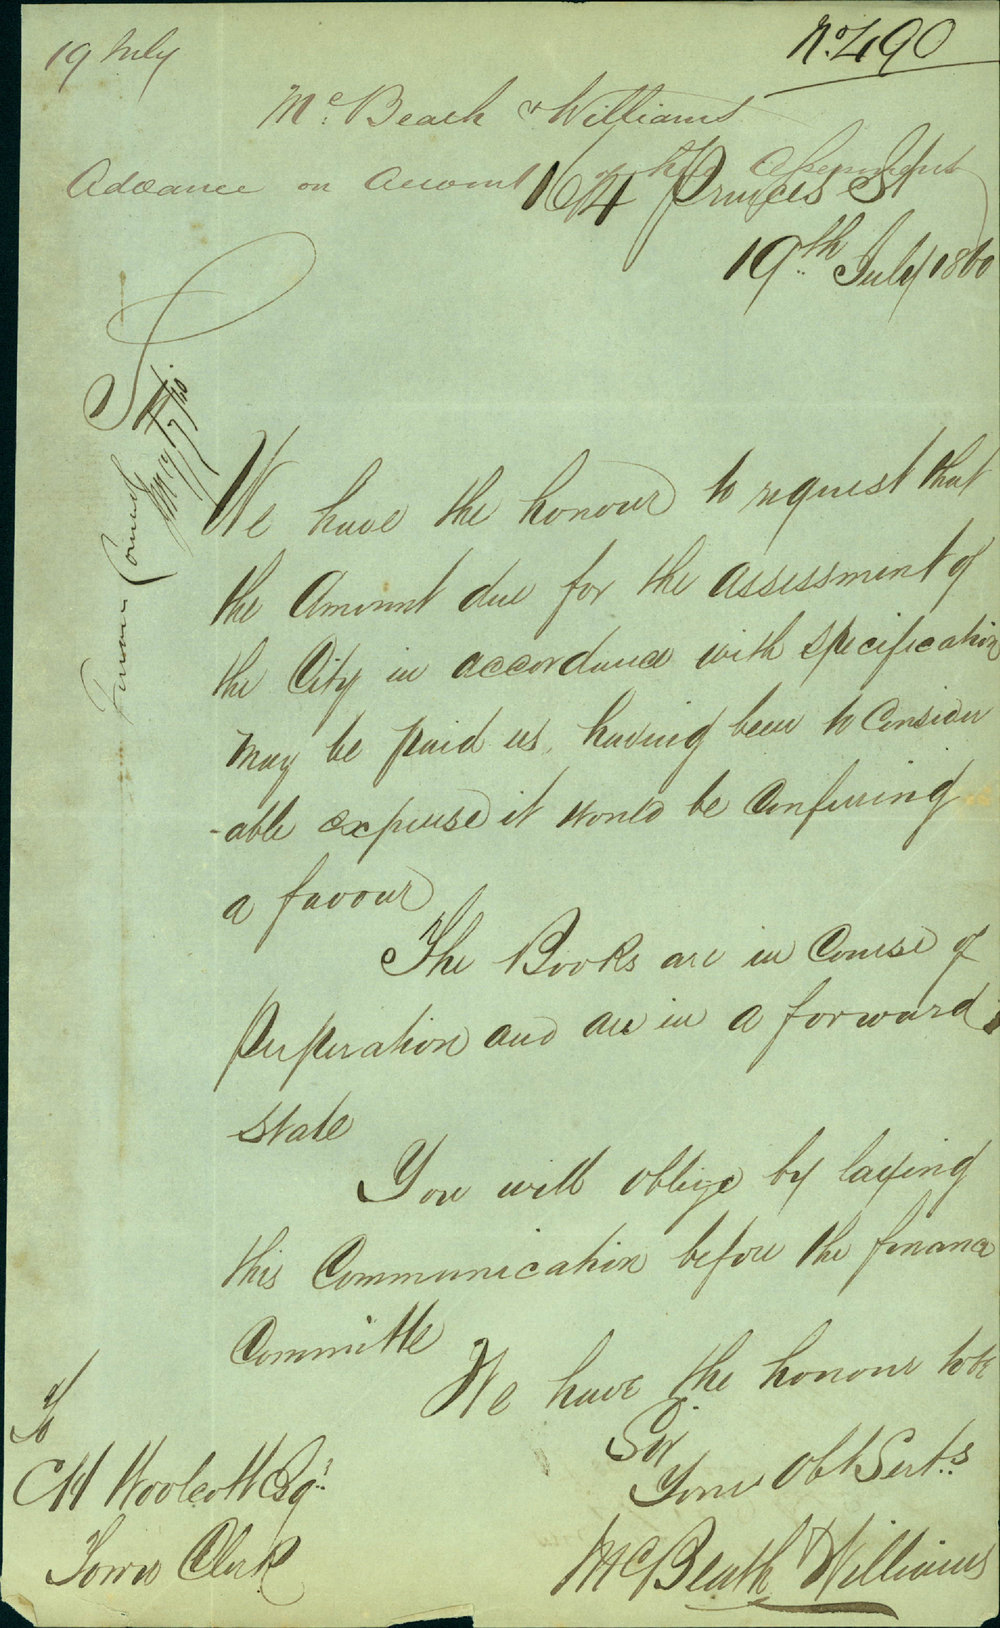 19 July
No. 490
Mc. Beath & Williams
Advance on account of the Assessment
164 Princes St
19th July 1860
Sir
Finance Committee
We have the honour to request that
the Amount due for the assessment of
the City in accordance with specification
may be paid us, having been to Consider
-able expense it would be Conferring
a favour
The Books are in Course of
Perperation and are in a forward
state
You will oblige by laying
this Communication before the finance
Committe
We have the honour to be
Sir
Your Obt Servts
McBeath & Williams
To
CH Woolcott Esqr
Town Clerk